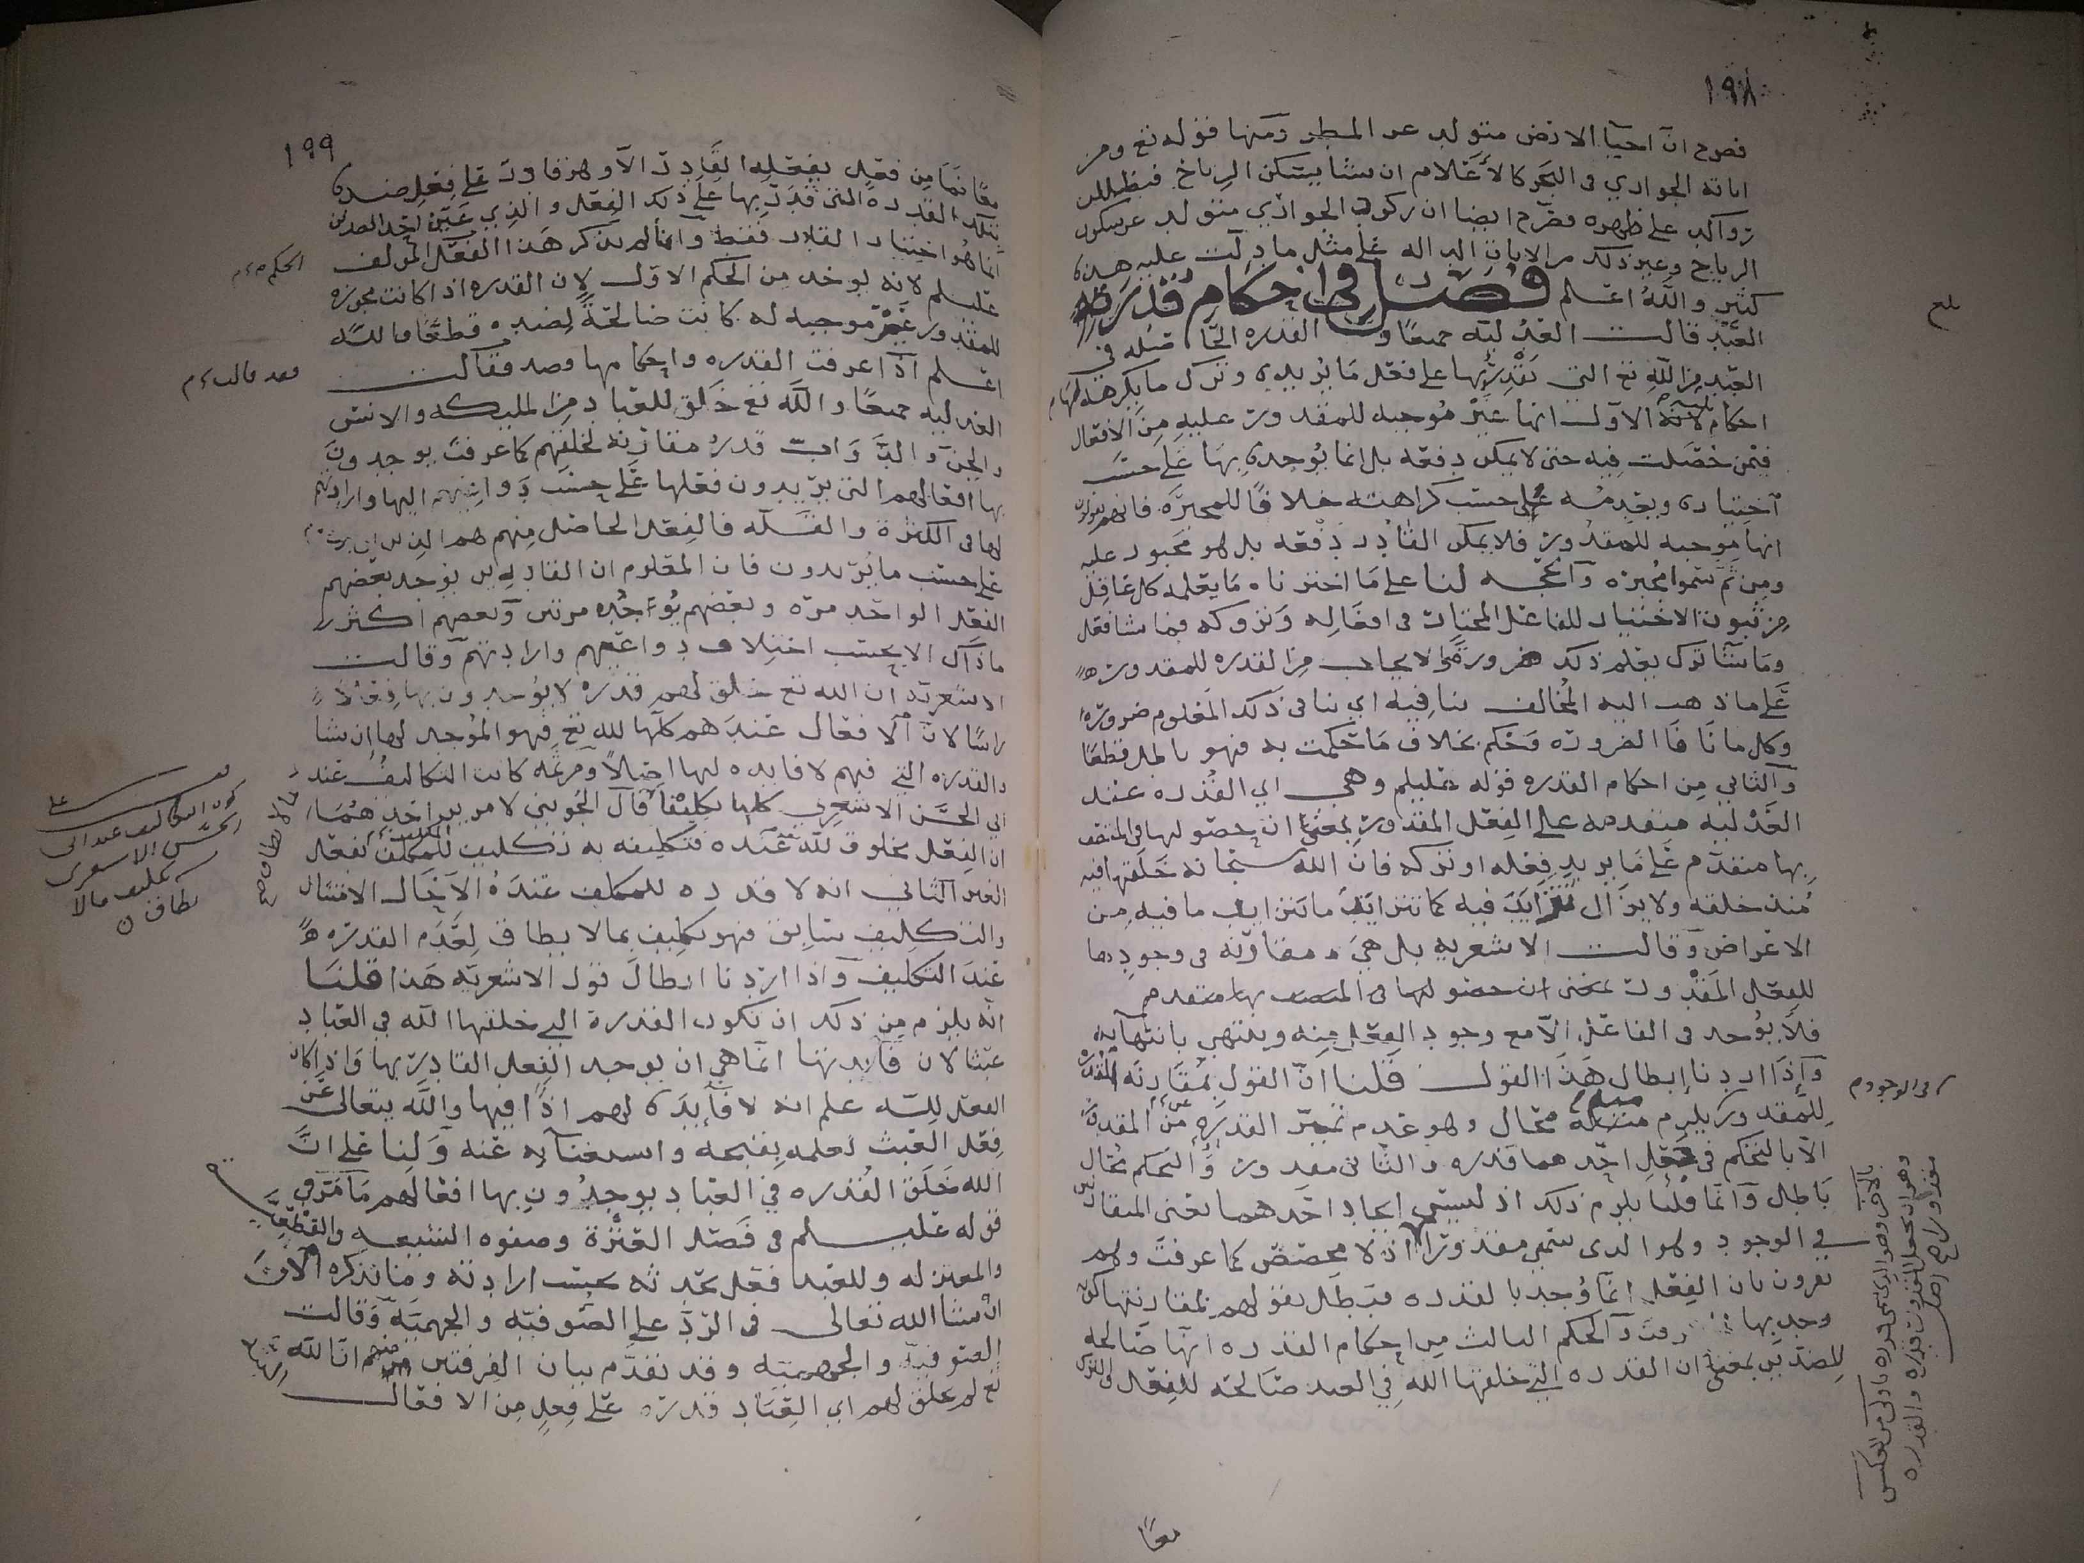 ١٩٨
فصرح ان احيآ الارض متولد عن المطر ومنها قوله تع ومن
اياته الجواري في البحر كالأعلام ان يشا يسكن الرياح فيظللن
رواكد على ظهره فصرح ايضا ان ركود الجواري متولد عن سكون
الرياح وغير ذلك من الايات الداله على مثل ما دلت عليه هذه
كثير والله اعلم فصل في احكام قدرة
العبد قالت العدليه جميعًا و القدره الحاصله في
العبد من الله تع التي يقدر بها على فعل ما يريده وترك ما يكرهه لها
احكام ثلاثة الاول انها غير موجبه للمقدور عليه من الافعال
فيمن حصلت فيه حتى لا يمكن دفعه بل انما يوجده بها على حسب
اختياره ويعدمه على حسب كراهته خلافًا للمجبرة فانهم يقولون
انها موجبه للمقدور فلا يمكن القادر دفعه بل هو مجبور عليه
ومن ثم سموا مجبره والحجه لنا على ما اخترناه ما يعلمه كل عاقل
من ثبوت الاختيار للفاعل المختار في افعاله وتروكه فما شا فعل
وما شآ ترك يعلم ذلك ضرورة والايجاب من القدره للمقدور
على ما ذهب اليه المخالف ينافيه اي ينافي ذلك المعلوم ضرورة
وكل ما نافا الضرورة وحكم بخلاف ما حكمت به فهو باطل قطعًا
والثاني من احكام القدره قوله عليلم وهي اي القدره عند
العدليه متقدمه على الفعل المقدور بمعنى ان حصولها في المتصف
بها متقدم على ما يريد فعله او تركه فان الله سبحانه خلقها فيه
منذ خلقه ولا يزال تتزايد فيه كما تتزايد ما يتزايد ما فيه من
الاعراض وقالت الاشعريه بل هي مقارنه في وجودها
للفعل المقدور بمعنى ان حصولها في المتصف بها متقدم
فلا يوجد في الفاعل الا مع وجود الفعل منه وينتهي بانتهآيه
وإذا اردنا إبطال هذا القول قلنا ان القول بمقارنة القدرة
للمقدور يلزم منه محال وهو عدم تميز القدره من المقدور
الا بالتحكم في جعل احدهما قدره والثاني مقدور والتحكم محال
باطل وانما قلنا يلزم ذلك اذ ليس ايجاد احدهما يعني المتقارنين
في الوجود وهو الذي سمي مقدورًا اذ لا مخصص كما عرفت وهم
يقرون بان الفعل انما وُجد بالقدره فبطل قولهم بمقارنتها كون
وجد بها رفت والحكم الثالث من احكام القدره انها صالحه
للضدين بمعنى ان القدره التي خلقها الله في العبد صالحه للفعل والترك
معًا
بلغ
في الوجود م
بالآخر وهو الذي سمي قدره باولى من العكس
وهو ان يجعل المقدور قدره والقدره
مقدورا صح اصل
١٩٩
معًا فما من فعل يفعله القادر الا وهو قادر على فعل ضده
بتلك القدره التي قدر بها على ذلك الفعل والذي عين احد الضدين
انما هو اختيار القادر فقط وانما لم يذكر هذا الفعل المؤلف
عليلم لانه يوخذ من الحكم الاول لان القدره اذا كانت مجوزه
للمقدور غير موجبه له كانت صالحة لضده قطعًا مسئله
اعلم اذا عرفت القدره واحكامها وصد فقالت
العدليه جميعًا والله تع خلق للعباد من الملايكه والانس
والجن والدواب قدره مقارنه لخلقهم كما عرفت يوجدون
بها افعالهم التي يريدون فعلها على حسب دواعيهم اليها وارادتهم
لها في الكثرة والقلة فالفعل الحاصل منهم هم الذين
على حسب ما يريدون فان المعلوم ان القادرين يوجد بعضهم
الفعل الواحد مرّه وبعضهم يُوجده مرتين وبعضهم اكثر
ما ذاك الا بحسب اختلاف دواعيهم وارادتهم وقالت
الاشعرية ان الله تع خلق لهم قدره لا يوجدون بها فعلًا
راسًا لان الافعال عندهم كلها لله تع فهو الموجد لها إن شا
والقدره التي فيهم لا فايده لها اصلًا ومن ثمه كانت التكاليف عند
ابي الحسن الاشعري كلها تكليفا قال الجويني لامرين احدهما
ان الفعل مخلوق لله عنده فتكليفه به تكليف للمكلف بفعل
الغير الثاني انه لا قدره للمكلف عنده الا حال الامتثال
والتكليف سابق فهو تكليف بما لا يطاق لعدم القدره
عند التكليف واذا اردنا ابطال قول الاشعريه هذا قلنا
انه يلزم من ذلك ان تكون القدرة التي خلقها الله في العباد
عبثا لان فايدتها انما هي ان يوجد الفعل القادر بها واذا كان
الفعل لله علم انه لا فآيدة لهم اذًا فيها والله يتعالى عن
فعل العبث لعلمه بقبحه واستغنآيه عنه ولنا على ان
الله خلق القدره في العباد يوجدون بها افعالهم ما مر في
قوله عليلم في فصل العترة وصفوه الشيعه والقطعية
والمعتزله وللعبد فعل يحدثه بحسب ارادته وما نذكره الآن
ان شآ الله تعالى في الرد على الصوفيه والجهمية وقالت
الصوفية والجهميه وقد تقدم بيان الفرقتين انا لله
تع لم يخلق لهم اي العباد قدرة على فعل من الافعال
الحكم
فقد قالت م
على
كون التكاليف عند ابي
الحسن الاشعري
تكليف مالا
يطاق
بما لا يطاق صح